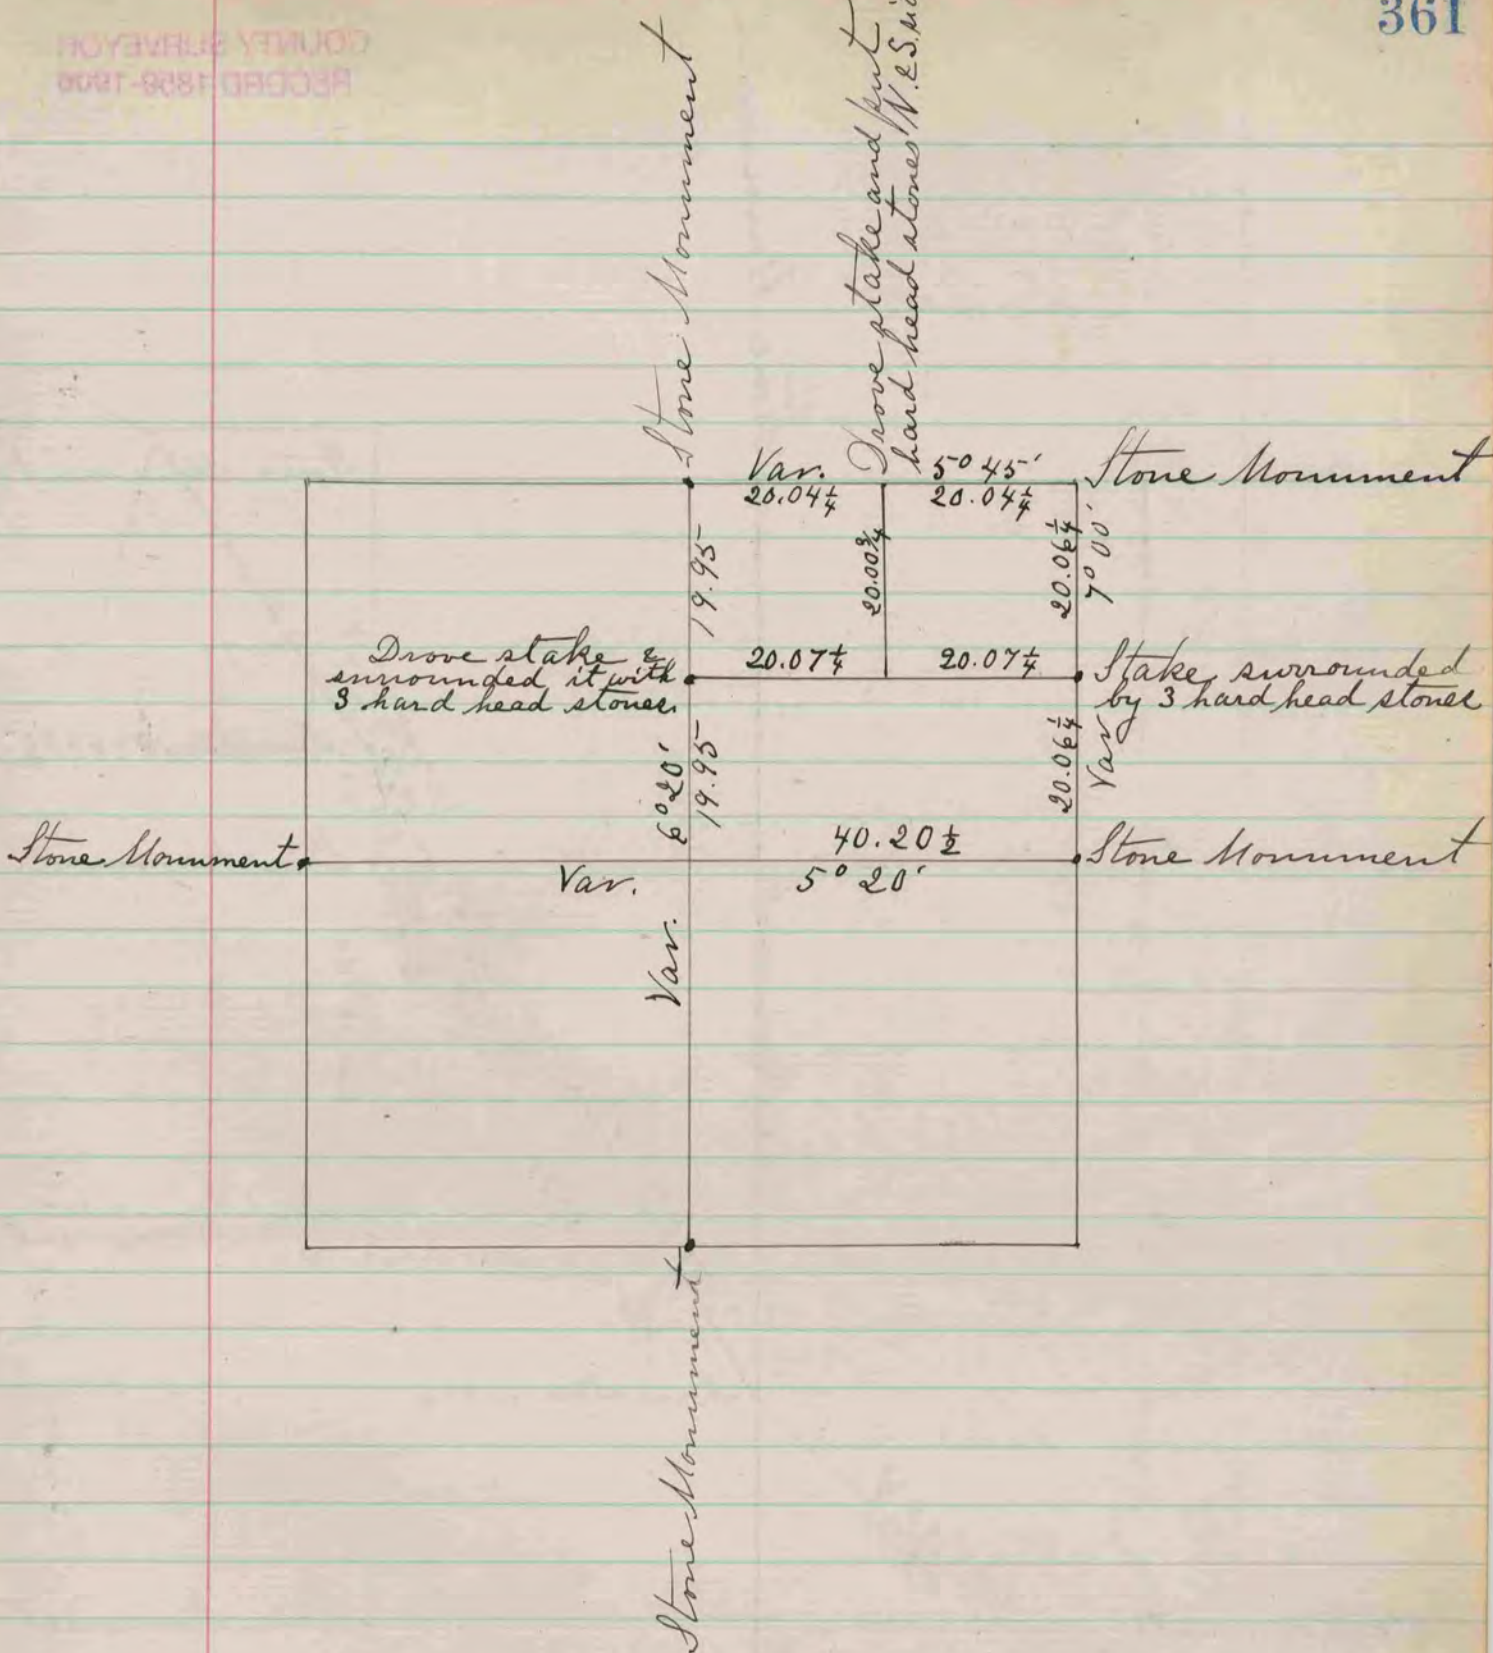 361
COUNTY SURVEYOR
RECORD 1859-1906
Stone Monument
Drove stake and put
hard head stones N. & S.
Var. 5° 45'
Stone Monument
20.04 1/4
20.04 1/4
19.95
20.00 3/4
20.06 1/4
7° 00'
Drove stake &
surrounded it with
3 hard head stones
20.07 1/4
20.07 1/4
Stake surrounded
by 3 hard head stones
6° 20'
19.95
20.06 1/4
Var
Stone Monument
40.20 1/2
Stone Monument
Var. 5° 20'
Var.
Stone Monument